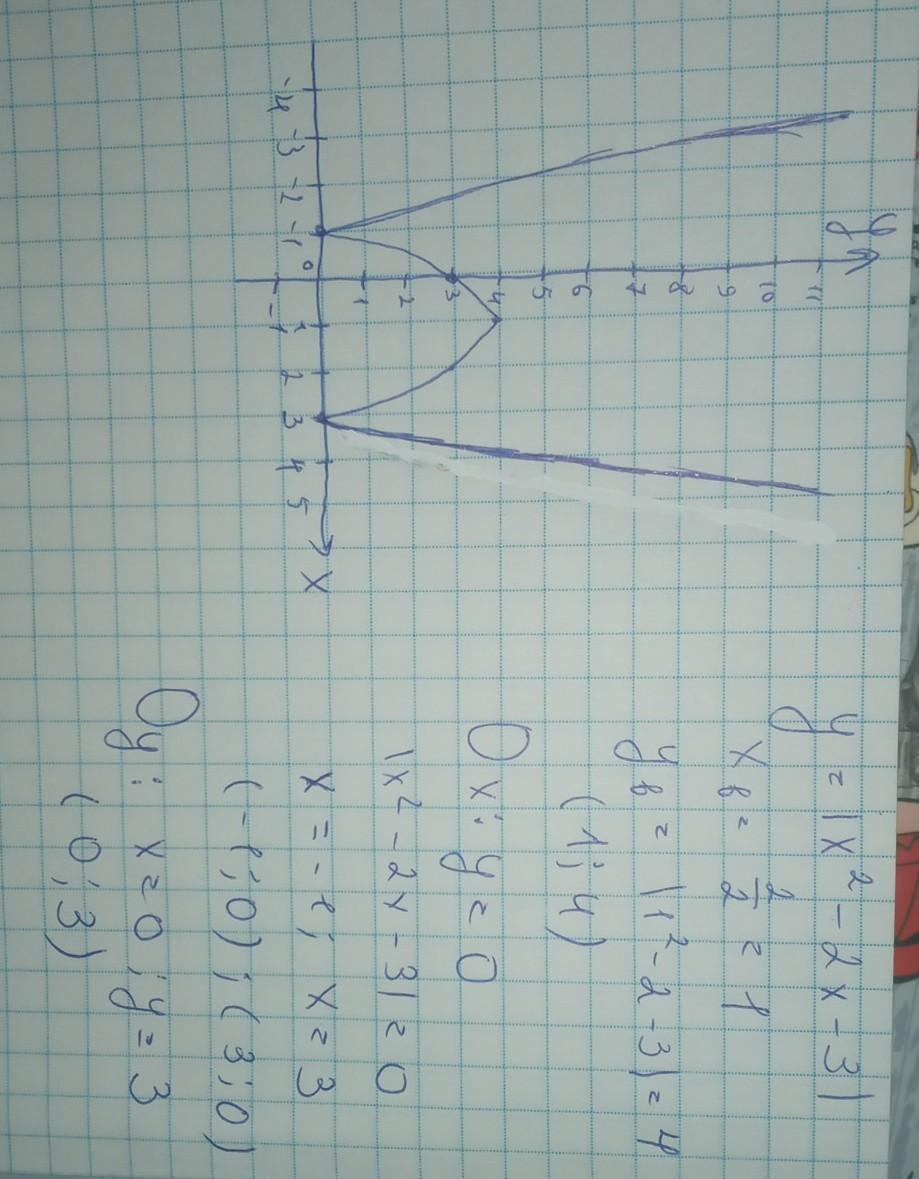 y
11
10
9
8
7
6
5
4
3
2
1
-4 -3 -2 -1 0 1 2 3 4 5 x
-1
y = |x² - 2x - 3|
xв = 2/2 = 1
yв = |1² - 2 - 3| = 4
(1; 4)
Ox: y = 0
|x² - 2x - 3| = 0
x = -1; x = 3
(-1; 0); (3; 0)
Oy: x = 0; y = 3
(0; 3)